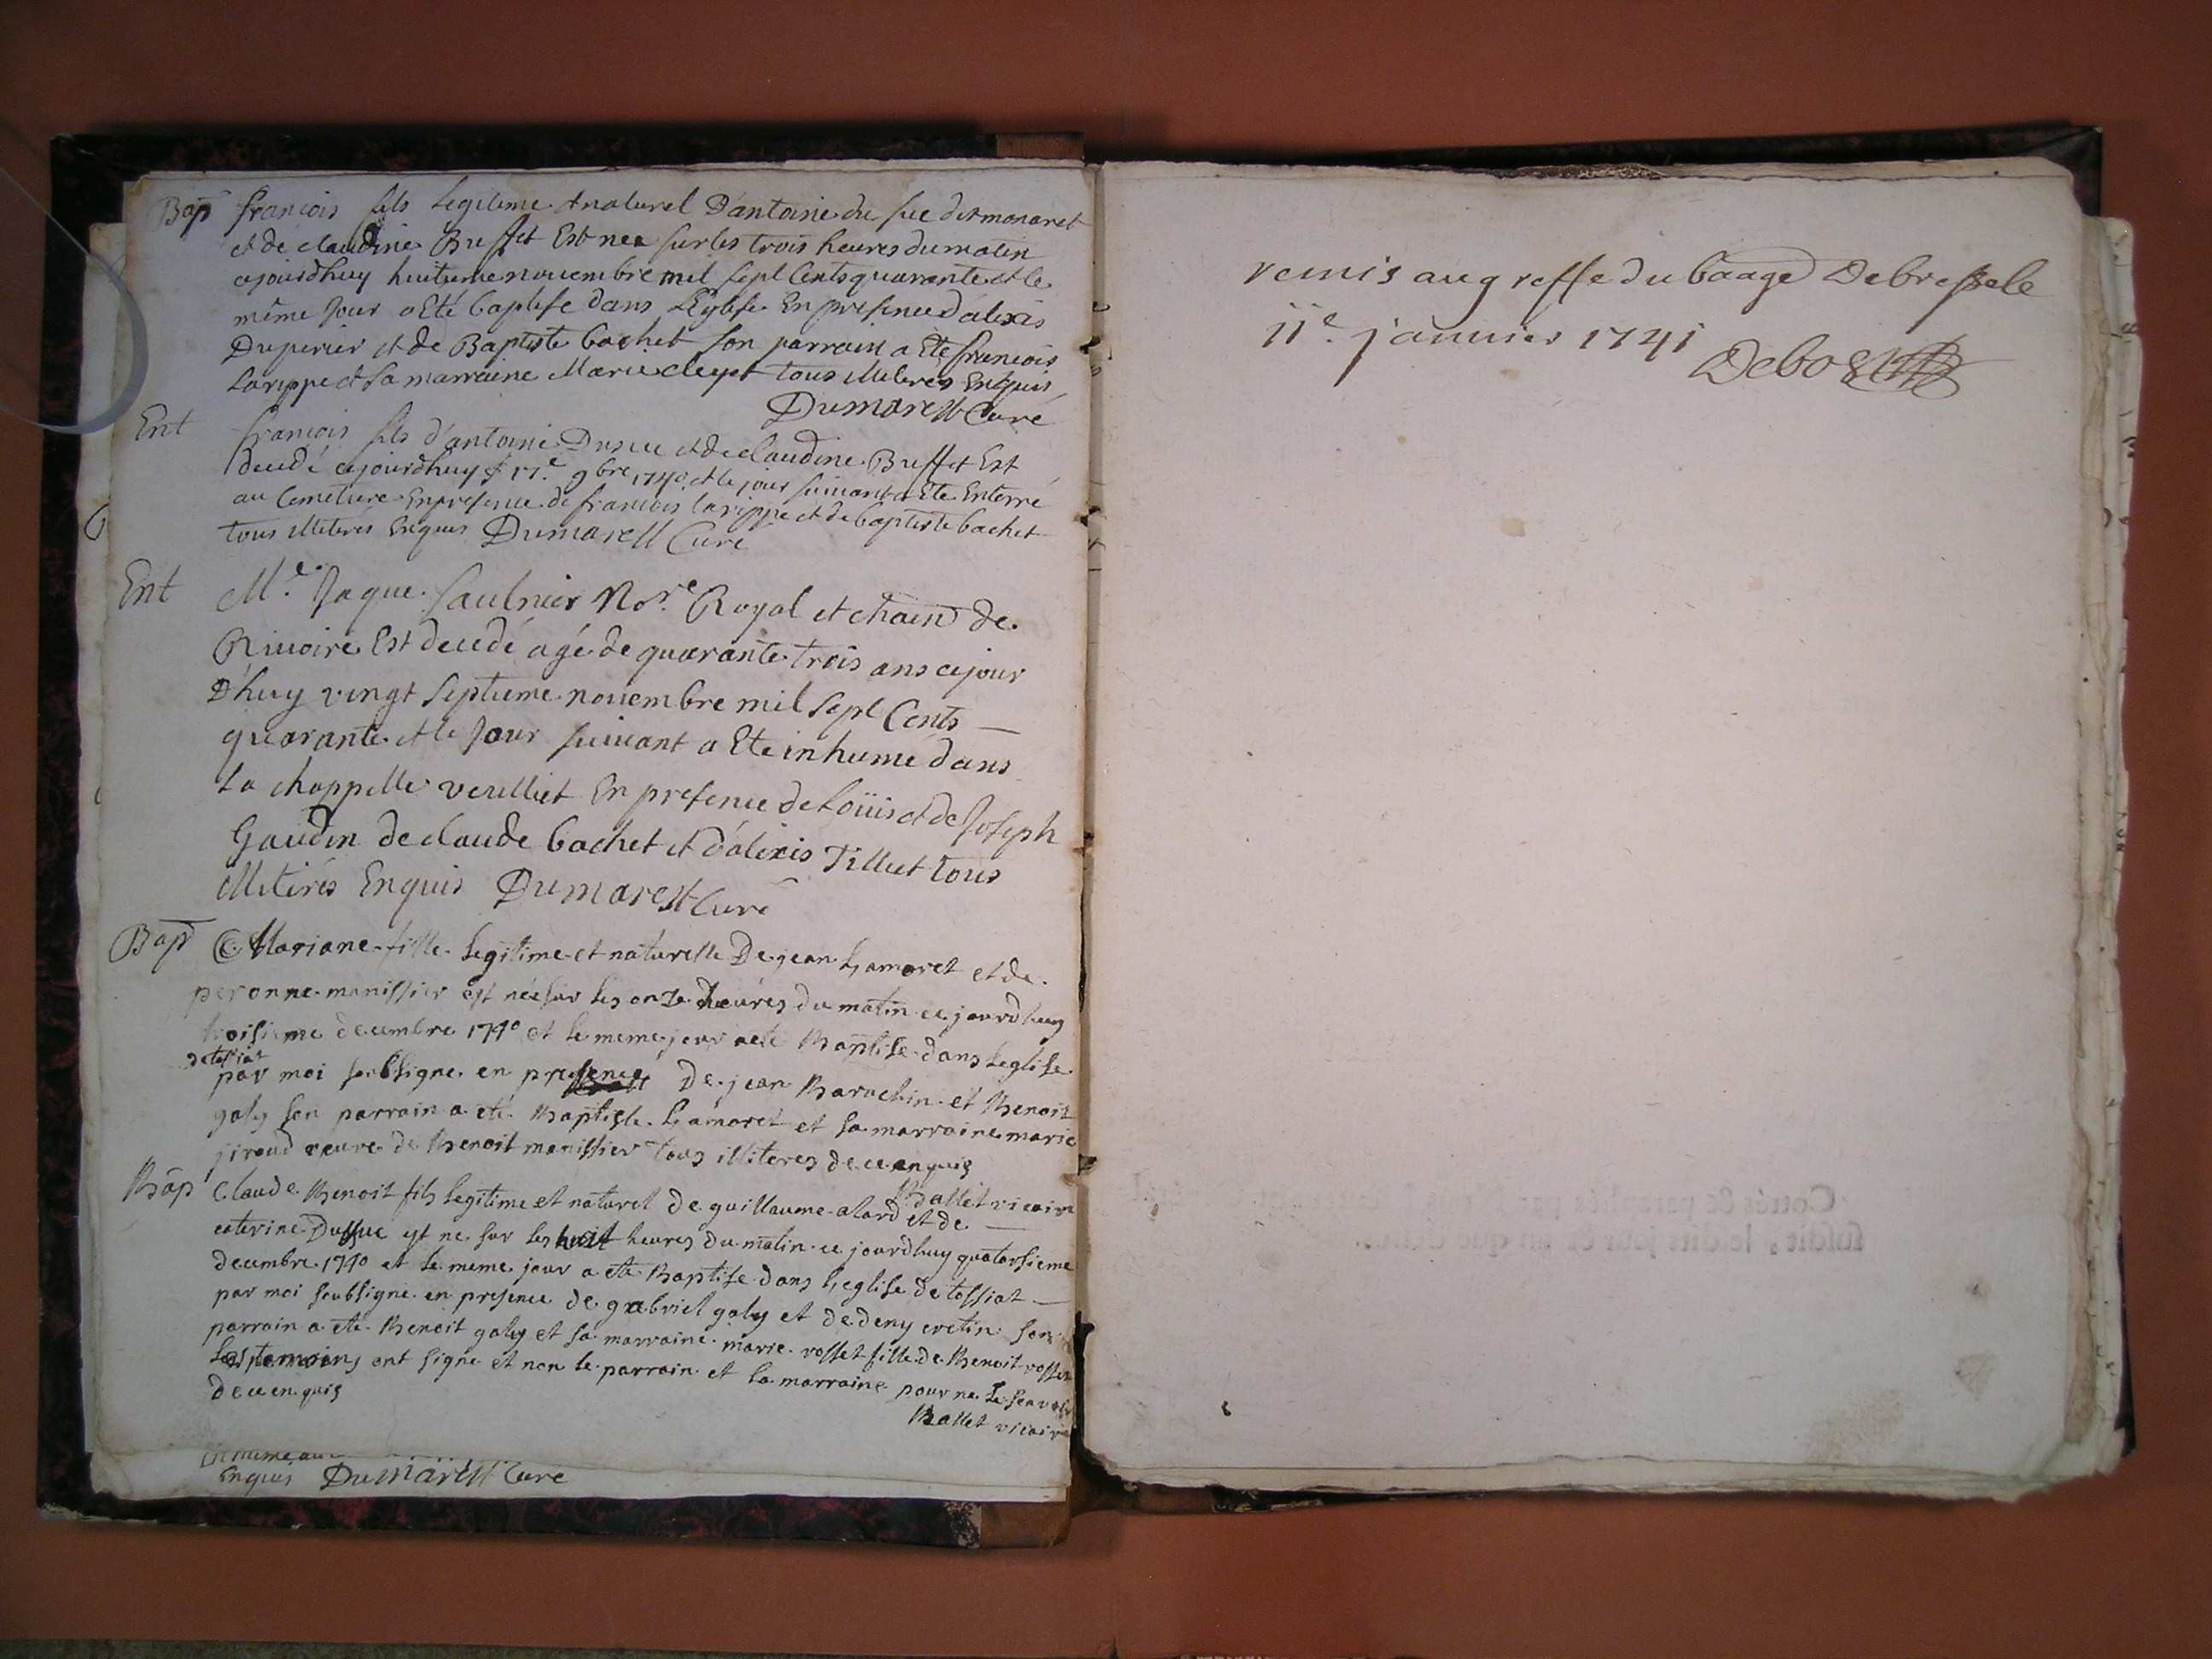 Bap françois fils Legitime et naturel D'antoine du suc dit monaret
et de claudine Buffet Est nea sur les trois heures du matin
ajourdhuy huitieme nouembre mil sept Cents quarante et le
même Jour a Eté baptise dans L'Eglise En presence d'alexis
Duperier et de Baptiste bachet son parrain a Ete francois
Larippe et sa marraine Marie cleyet tous illiteres Enquis
Dumarest Curé
Ent francois fils d'antoine Dusuc et de claudine Buffet Est
decedé ajourdhuy 17e 9bre 1740 et le jour suiuant a Ete Enterré
au Cemetiere En presence de francois larippe et de baptiste bachet
tous illiteres Enquis Dumarest Curé
Ent Me Jaque Saulnier Nore Royal et chatn de
Riuoire Est decedé agé de quarante trois ans cejour
D'huy vingt septieme nouembre mil sept Cents
quarante et le Jour suiuant a Ete inhumé dans
La chappelle veulliet En presence de Loüis et de Joseph
Gaudin de claude bachet et d'alexis Tilliet tous
illiterés Enquis Dumarest Curé
Bap Mariane fille legitime et naturelle De jean Lamoret et de
peronne manissier est née sur les onze heures du matin ce jourdhuy
troisieme decembre 1740 et le meme jour a eté Baptise dans leglise
detossiat
par moi soubsigne en presence De jean Barachin et Benoit
galy son parrain a eté Baptiste Lamoret et sa marraine marie
jiroud veuve de Benoit manissier tous illiteres de ce enquis
Ballet vicaire
Bap Claude Benoit fils legitime et naturel de guillaume alard et de
caterine Dussuc est ne sur les huit heures du matin ce jourdhuy quatorsieme
decembre 1740 et le meme jour a ete Baptise dans L'eglise de tossiat
par moi soubsigne en presence de gabriel galy et de deny cretin son
parrain a eté Benoit galy et sa marraine marie rosset fille de Benoit rosset
les temoins ont signe et non le parrain et la marraine pour ne le scavoir
de ce enquis
Ballet vicaire
inhume au
Enquis Dumarest Curé
remis au greffe du baage De bresse le
11e janvier 1741